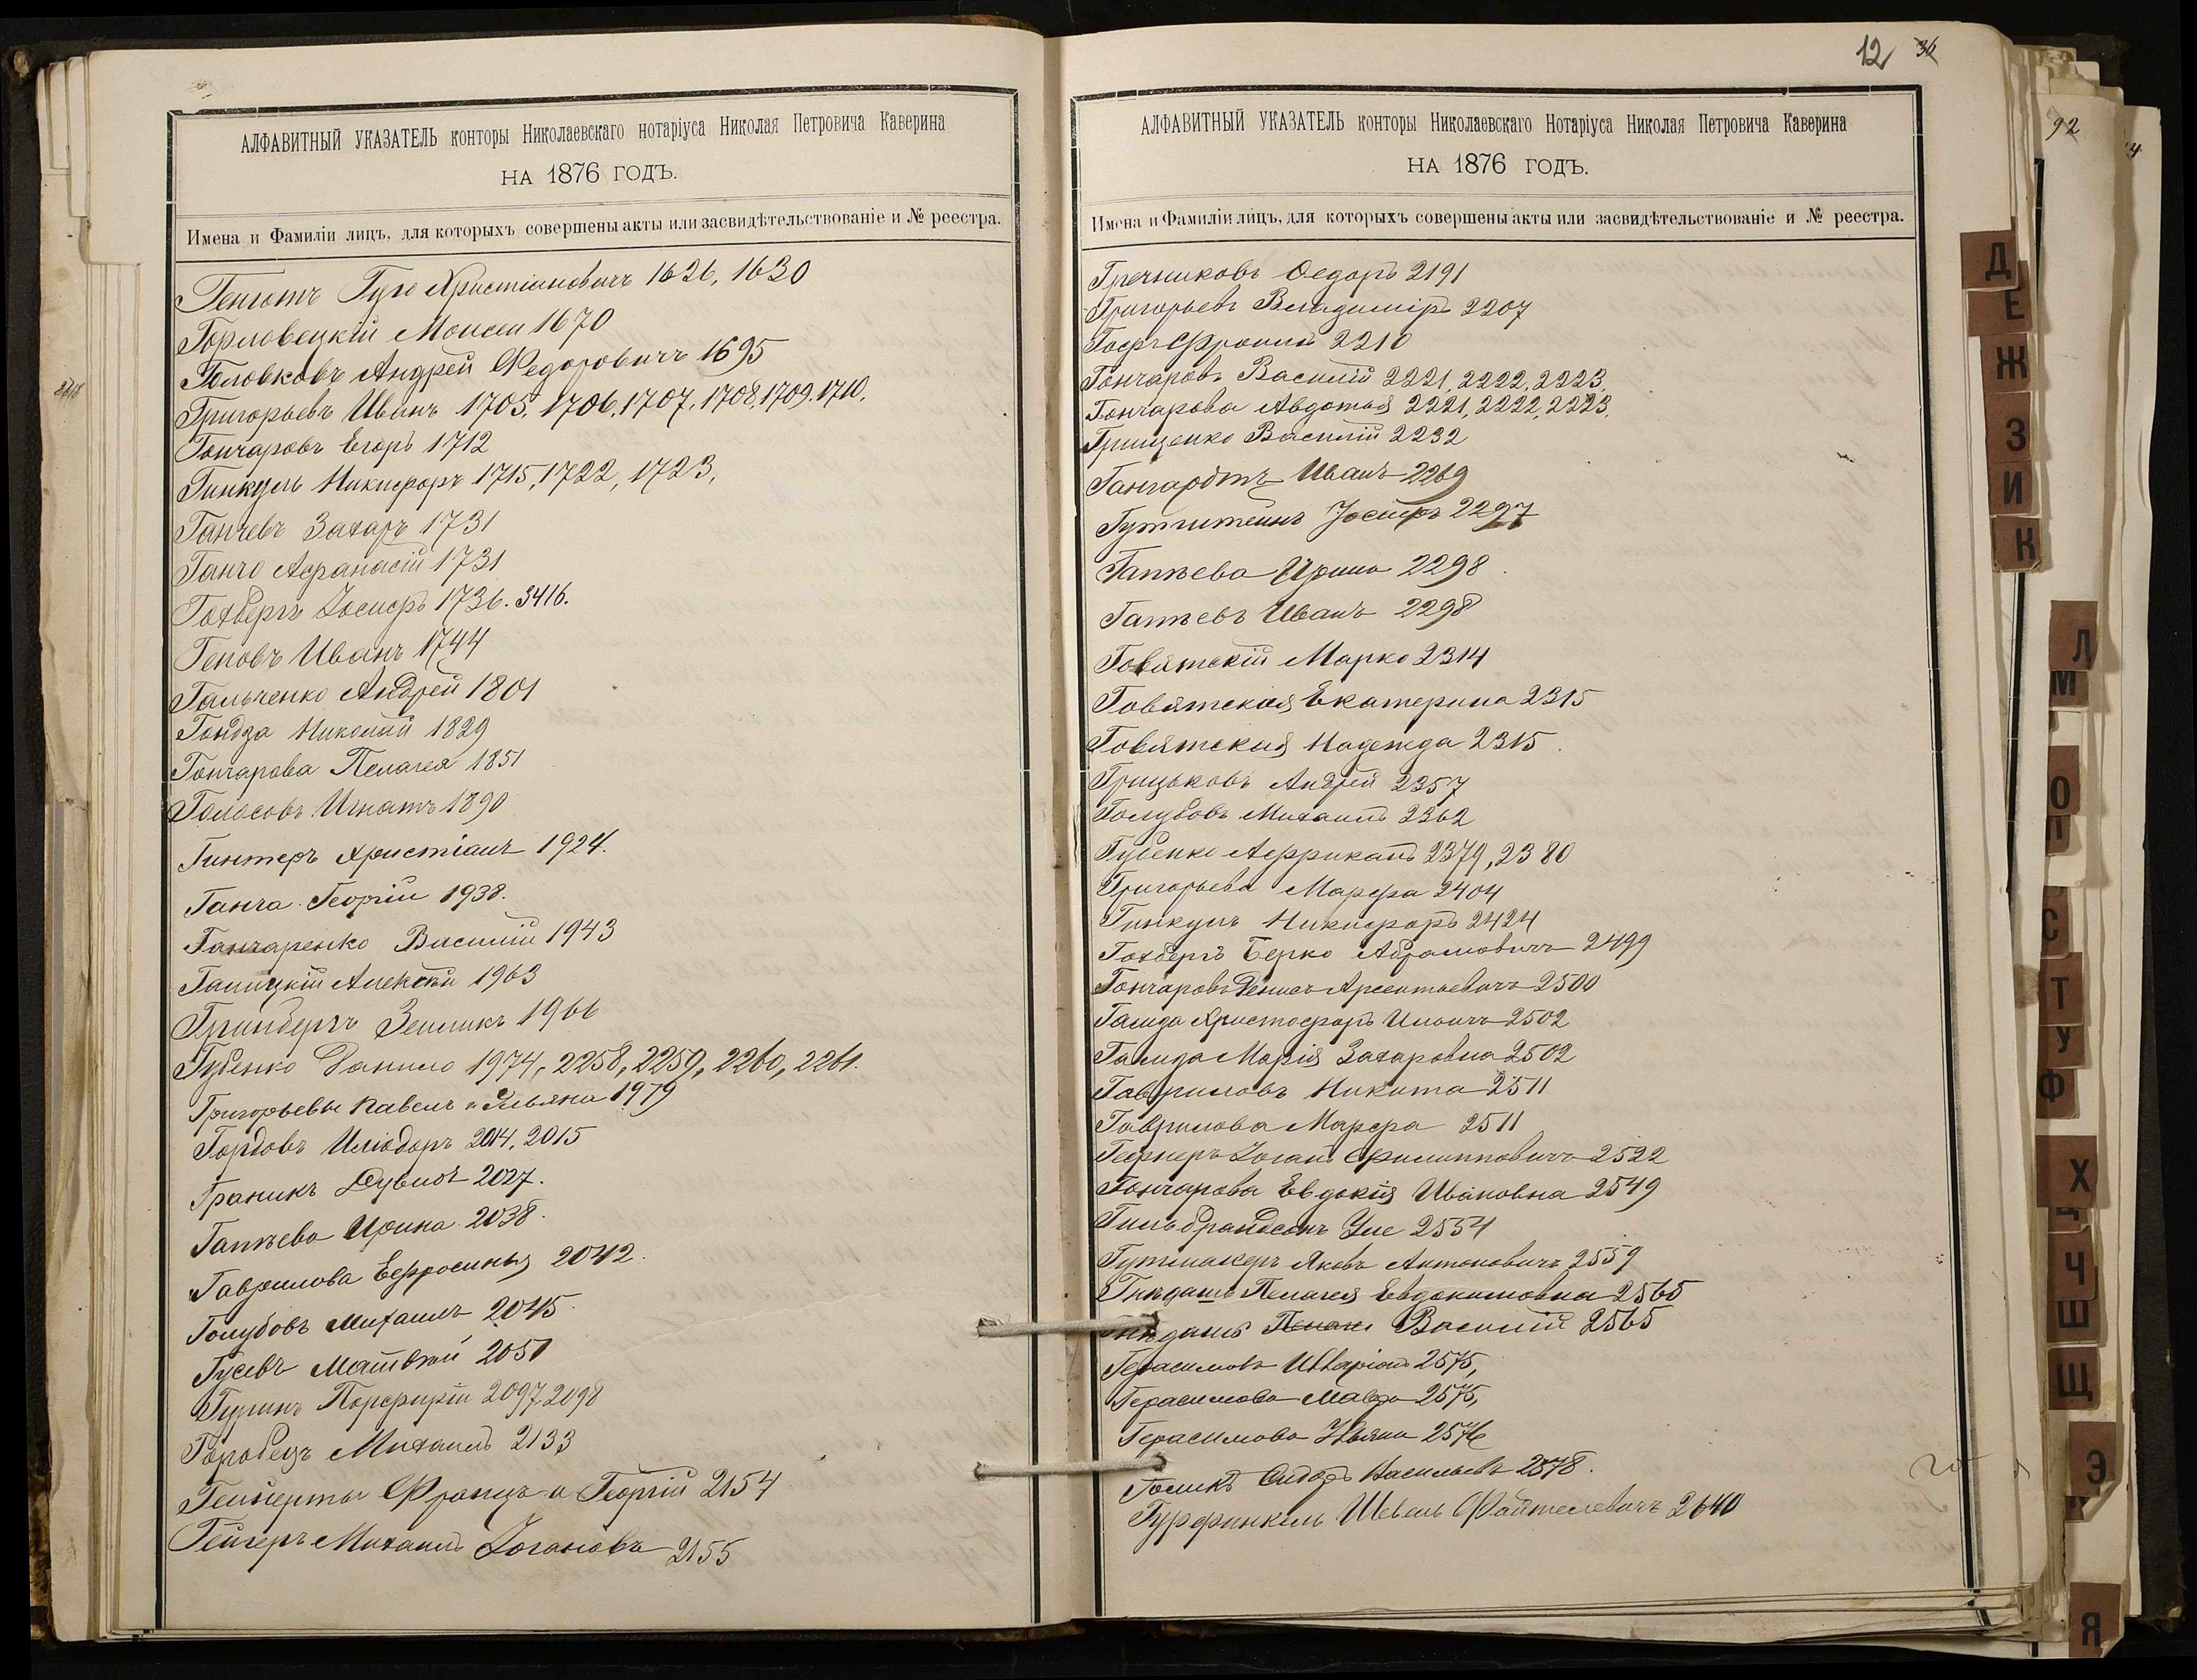 АЛФАВИТНЫЙ УКАЗАТЕЛЬ конторы Николаевскаго нотаріуса Николая Петровича Каверина
НА 1876 ГОДЪ.
Имена и Фамиліи лицъ, для которыхъ совершены акты или засвидѣтельствованіе и № реестра.
Гуго Христіановичъ 1626, 1630
Горловецкій Моисей 1670
Головковъ Андрей Федоровичъ 1695
Григорьевъ Иванъ 1705, 1706, 1707, 1708, 1709, 1710.
Гончаровъ Егоръ 1712
Гинкулъ Никифоръ 1715, 1722, 1723,
Ганчевъ Захаръ 1731
Ганчо Афанасій 1731
Гохбергъ Іосифъ 1736. 3416.
Геновъ Иванъ 1744
Гальченко Андрей 1801
Гондза Николай 1829
Гончарова Пелагея 1851
Голосовъ Игнатъ 1890
Гинтеръ Христіанъ 1924.
Ганча Георгій 1938.
Ганчаренко Василій 1943
Галицкій Алексѣй 1963
Гринбергъ Зеиликъ 1966
Губенко Данило 1974, 2258, 2259, 2260, 2261.
Григорьевы Павелъ и Ульяна 1979
Гордовъ Иліодоръ 2014, 2015
Граникъ Дувидъ 2027.
Гапѣева Ирина 2038.
Гаврилова Ефросинья 2042.
Голубовъ Михаилъ 2045.
Гусевъ Матвѣй 2051
Гуринъ Порфирій 2097, 2098
Городецъ Михаилъ 2133
Францъ и Георгій 2154
Гейгеръ Михаилъ Іогановъ 2155
12 36
АЛФАВИТНЫЙ УКАЗАТЕЛЬ конторы Николаевскаго Нотаріуса Николая Петровича Каверина
НА 1876 ГОДЪ.
Имена и Фамиліи лицъ, для которыхъ совершены акты или засвидѣтельствованіе и № реестра.
Гречниковъ Ѳедоръ 2191
Григорьевъ Владиміръ 2207
2210
Гончаровъ Василій 2221, 2222, 2223,
Гончарова Авдотья 2221, 2222, 2223,
Грищенко Василій 2232
Гангардтъ Иванъ 2269
Гутштейнъ Іосифъ 2297
Гапѣева Ирина 2298
Гапѣевъ Иванъ 2298
Говятскій Марко 2314
Говятская Екатерина 2315
Говятская Надежда 2315.
Грицьковъ Андрей 2357
Голубовъ Михаилъ 2362
Губенко Африканъ 2379, 2380
Григорьева Марфа 2404
Гинкулъ Никифоръ 2424
Гохбергъ Берко Абрамовичъ 2499
Гончаровъ Денисъ Арсентьевичъ 2500
Галида Христофоръ Ильичъ 2502
Галида Марія Захаровна 2502
Гавриловъ Никита 2511
Гаврилова Марфа 2511
Гефнеръ Іоганъ Филипповичъ 2522
Гончарова Евдокія Ивановна 2549
Гильбрандсонъ 2554
Гутмахеръ Яковъ Антоновичъ 2559
Гнѣдашъ Пелагея Евдокимовна 2565
Гнѣдашъ Василій 2565
Герасимовъ Иларіонъ 2575,
Герасимова Мавра 2575,
Герасимова Ульяна 2576
Голикъ Сидоръ Васильевъ 2578.
Гурфинкель Шевель Файтелевичъ 2640
92
Д
Е
Ж
З
И
К
Л
М
О
П
С
Т
У
Ф
Х
Ч
Ш
Щ
Э
Я